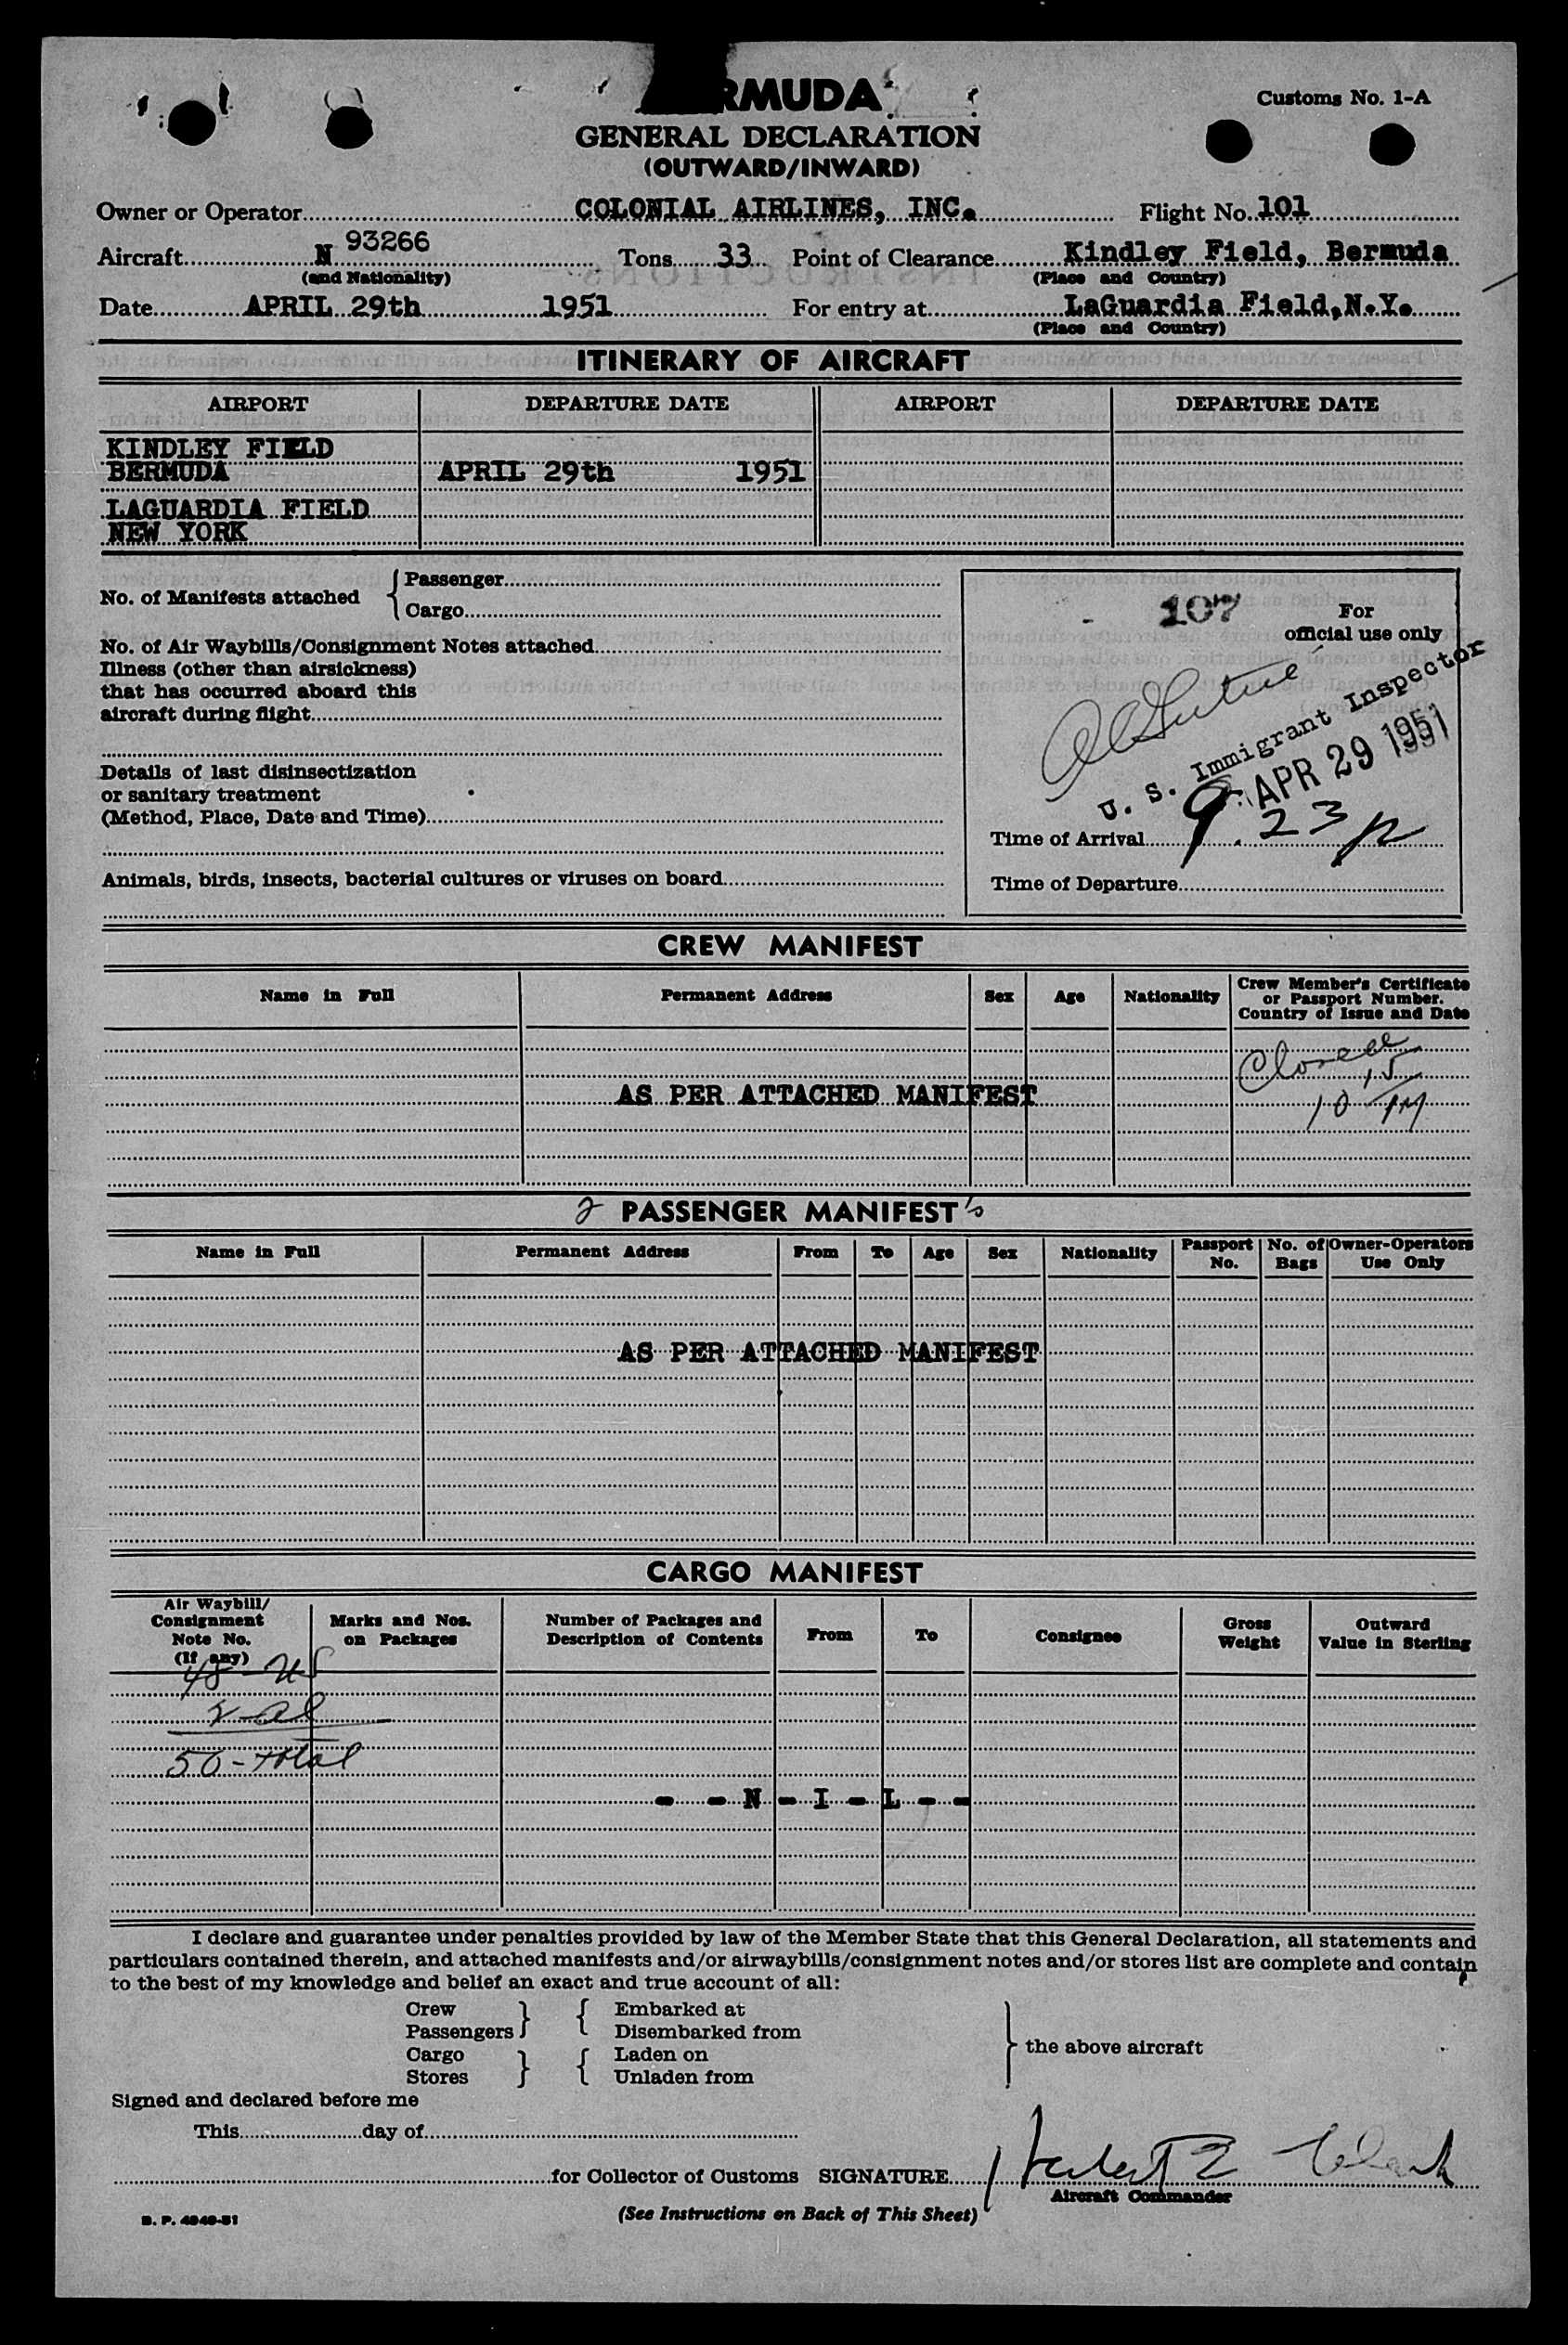 RMUDA
Customs No. 1-A
GENERAL DECLARATION
(OUTWARD/INWARD)
Owner or Operator COLONIAL AIRLINES, INC. Flight No. 101
Aircraft N 93266 Tons 33 Point of Clearance Kindley Field, Bermuda
(and Nationality) (Place and Country)
Date APRIL 29th 1951 For entry at LaGuardia Field,N.Y.
(Place and Country)
ITINERARY OF AIRCRAFT
AIRPORT DEPARTURE DATE AIRPORT DEPARTURE DATE
KINDLEY FIELD
BERMUDA APRIL 29th 1951
LAGUARDIA FIELD
NEW YORK
No. of Manifests attached { Passenger
Cargo
No. of Air Waybills/Consignment Notes attached
Illness (other than airsickness)
that has occurred aboard this
aircraft during flight
Details of last disinsectization
or sanitary treatment
(Method, Place, Date and Time)
Animals, birds, insects, bacterial cultures or viruses on board
107 For
official use only
U. S. Immigrant Inspector
APR 29 1951
Time of Arrival 9.23 p
Time of Departure
CREW MANIFEST
Name in Full Permanent Address Sex Age Nationality Crew Member's Certificate
or Passport Number.
Country of Issue and Date
Closed
AS PER ATTACHED MANIFEST
10 15 PM
2 PASSENGER MANIFEST's
Name in Full Permanent Address From To Age Sex Nationality Passport No. No. of Bags Owner-Operators Use Only
AS PER ATTACHED MANIFEST
CARGO MANIFEST
Air Waybill/
Consignment
Note No.
(If any) Marks and Nos.
on Packages Number of Packages and
Description of Contents From To Consignee Gross
Weight Outward
Value in Sterling
48 - US
2 - al
50 - total
- - N - I - L - -
I declare and guarantee under penalties provided by law of the Member State that this General Declaration, all statements and
particulars contained therein, and attached manifests and/or airwaybills/consignment notes and/or stores list are complete and contain
to the best of my knowledge and belief an exact and true account of all:
Crew } { Embarked at
Passengers Disembarked from
} the above aircraft
Cargo } { Laden on
Stores Unladen from
Signed and declared before me
This day of
for Collector of Customs SIGNATURE
Aircraft Commander
(See Instructions on Back of This Sheet)
B. P. 4040-51